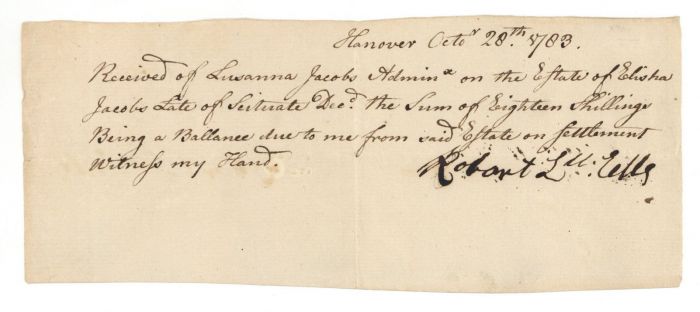 Hanover Octor 28.th 1783.
Received of Lusanna Jacobs Adminx on the Estate of Elisha
Jacobs Late of Scituate Decd. the Sum of Eighteen Shillings
Being a Ballance due to me from said Estate on Settlement
Witness my Hand.
Robart Lll. Eells